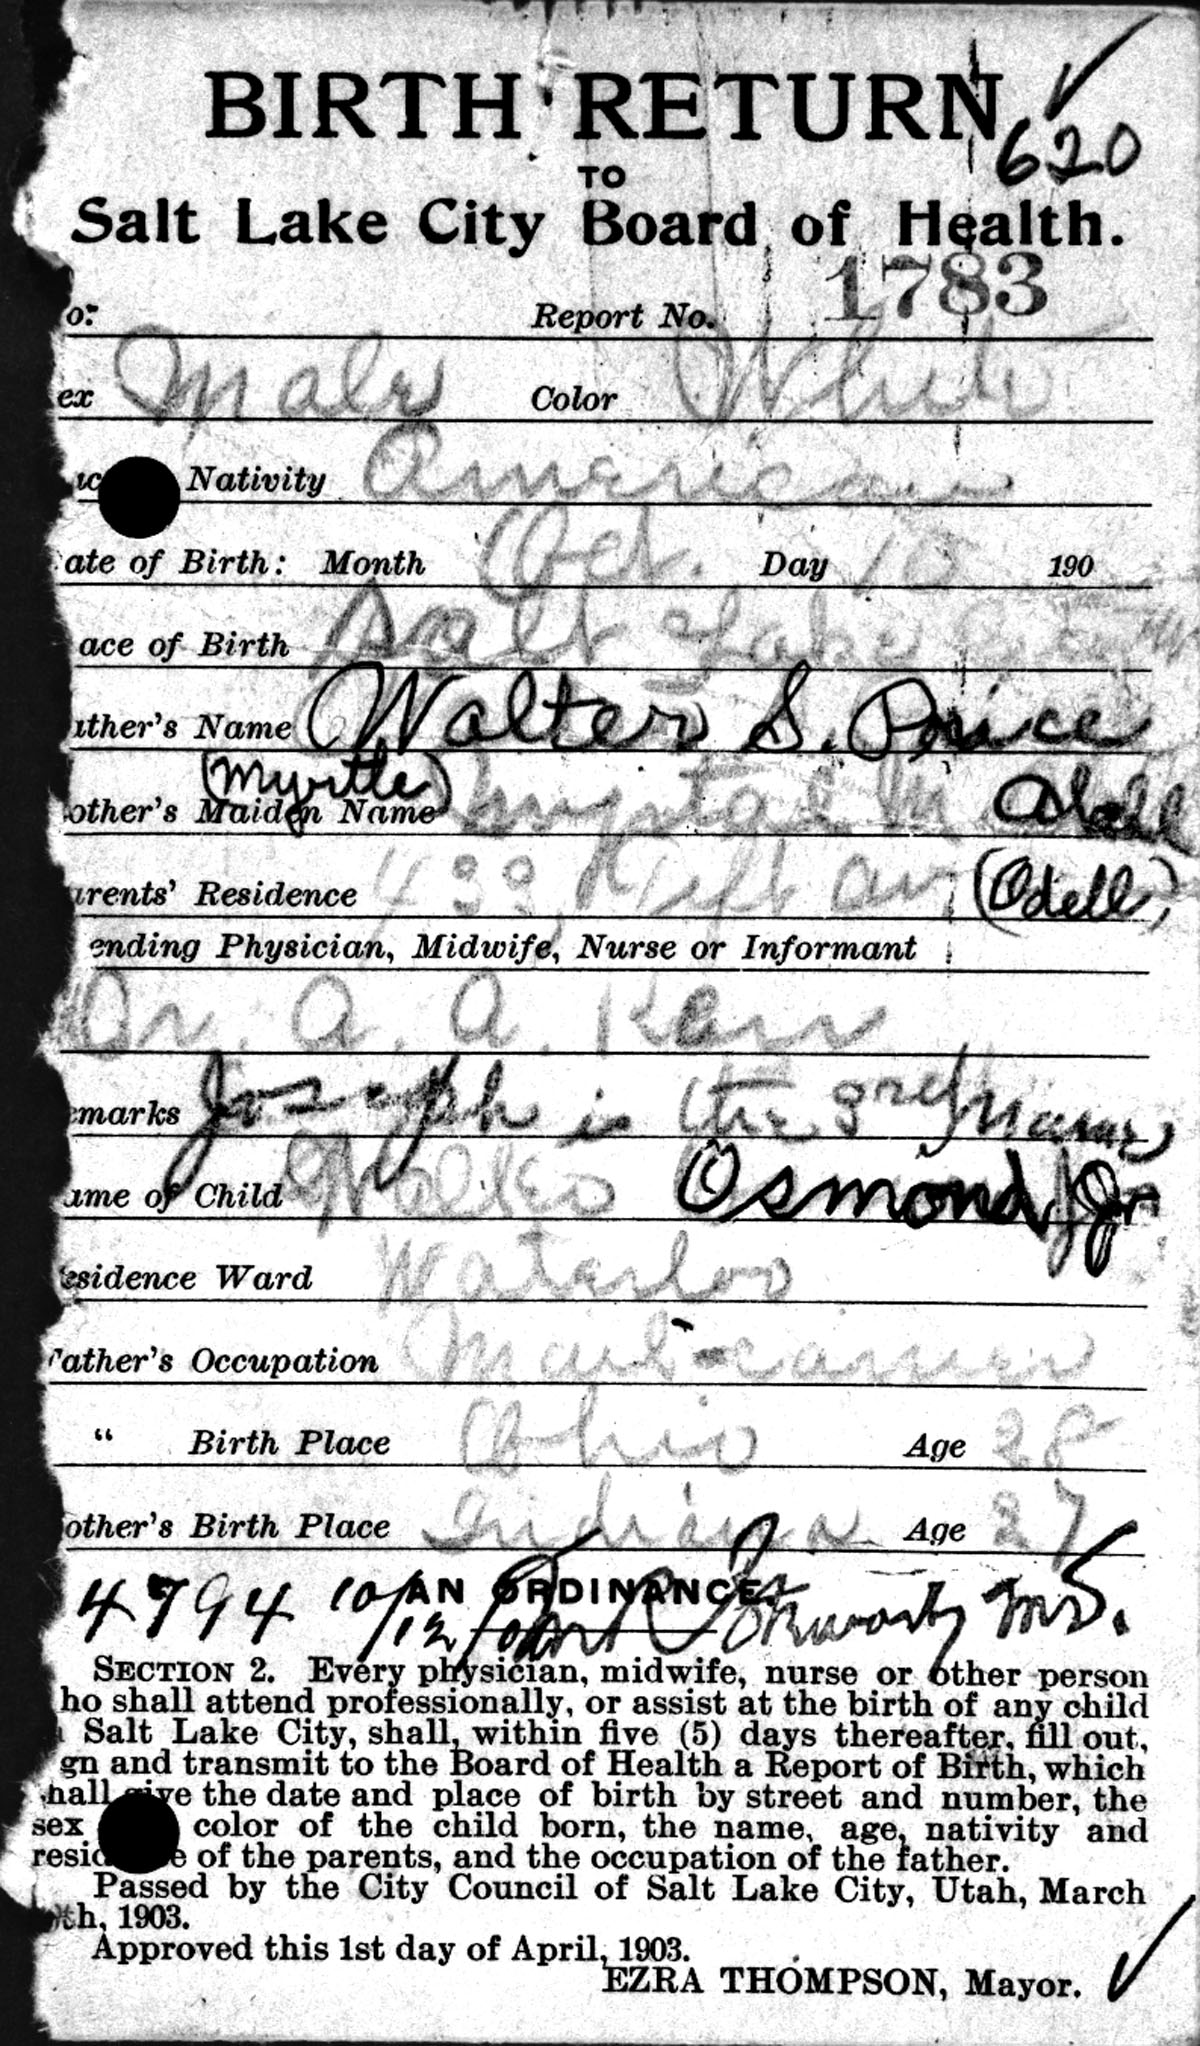 BIRTH RETURN
620
TO
Salt Lake City Board of Health.
o: Report No. 1783
ex Male Color White
Nativity American
ate of Birth: Month Oct. Day 10 190
ace of Birth Salt Lake City
ather's Name Walter S. Price
(Myrtle)
other's Maiden Name M Abdell
arents' Residence 433 Av (Odell)
ending Physician, Midwife, Nurse or Informant
Dr. A. A. Kerr
emarks Joseph is the name
ame of Child Walter Osmond Jr
esidence Ward Waterloo
Father's Occupation Mail-carrier
" Birth Place Ohio Age 28
other's Birth Place Indiana Age 27
4794 10/12 M.D.
AN ORDINANCE.
SECTION 2. Every physician, midwife, nurse or other person
ho shall attend professionally, or assist at the birth of any child
Salt Lake City, shall, within five (5) days thereafter, fill out,
gn and transmit to the Board of Health a Report of Birth, which
hall give the date and place of birth by street and number, the
sex color of the child born, the name, age, nativity and
resic e of the parents, and the occupation of the father.
Passed by the City Council of Salt Lake City, Utah, March
th, 1903.
Approved this 1st day of April, 1903.
EZRA THOMPSON, Mayor.